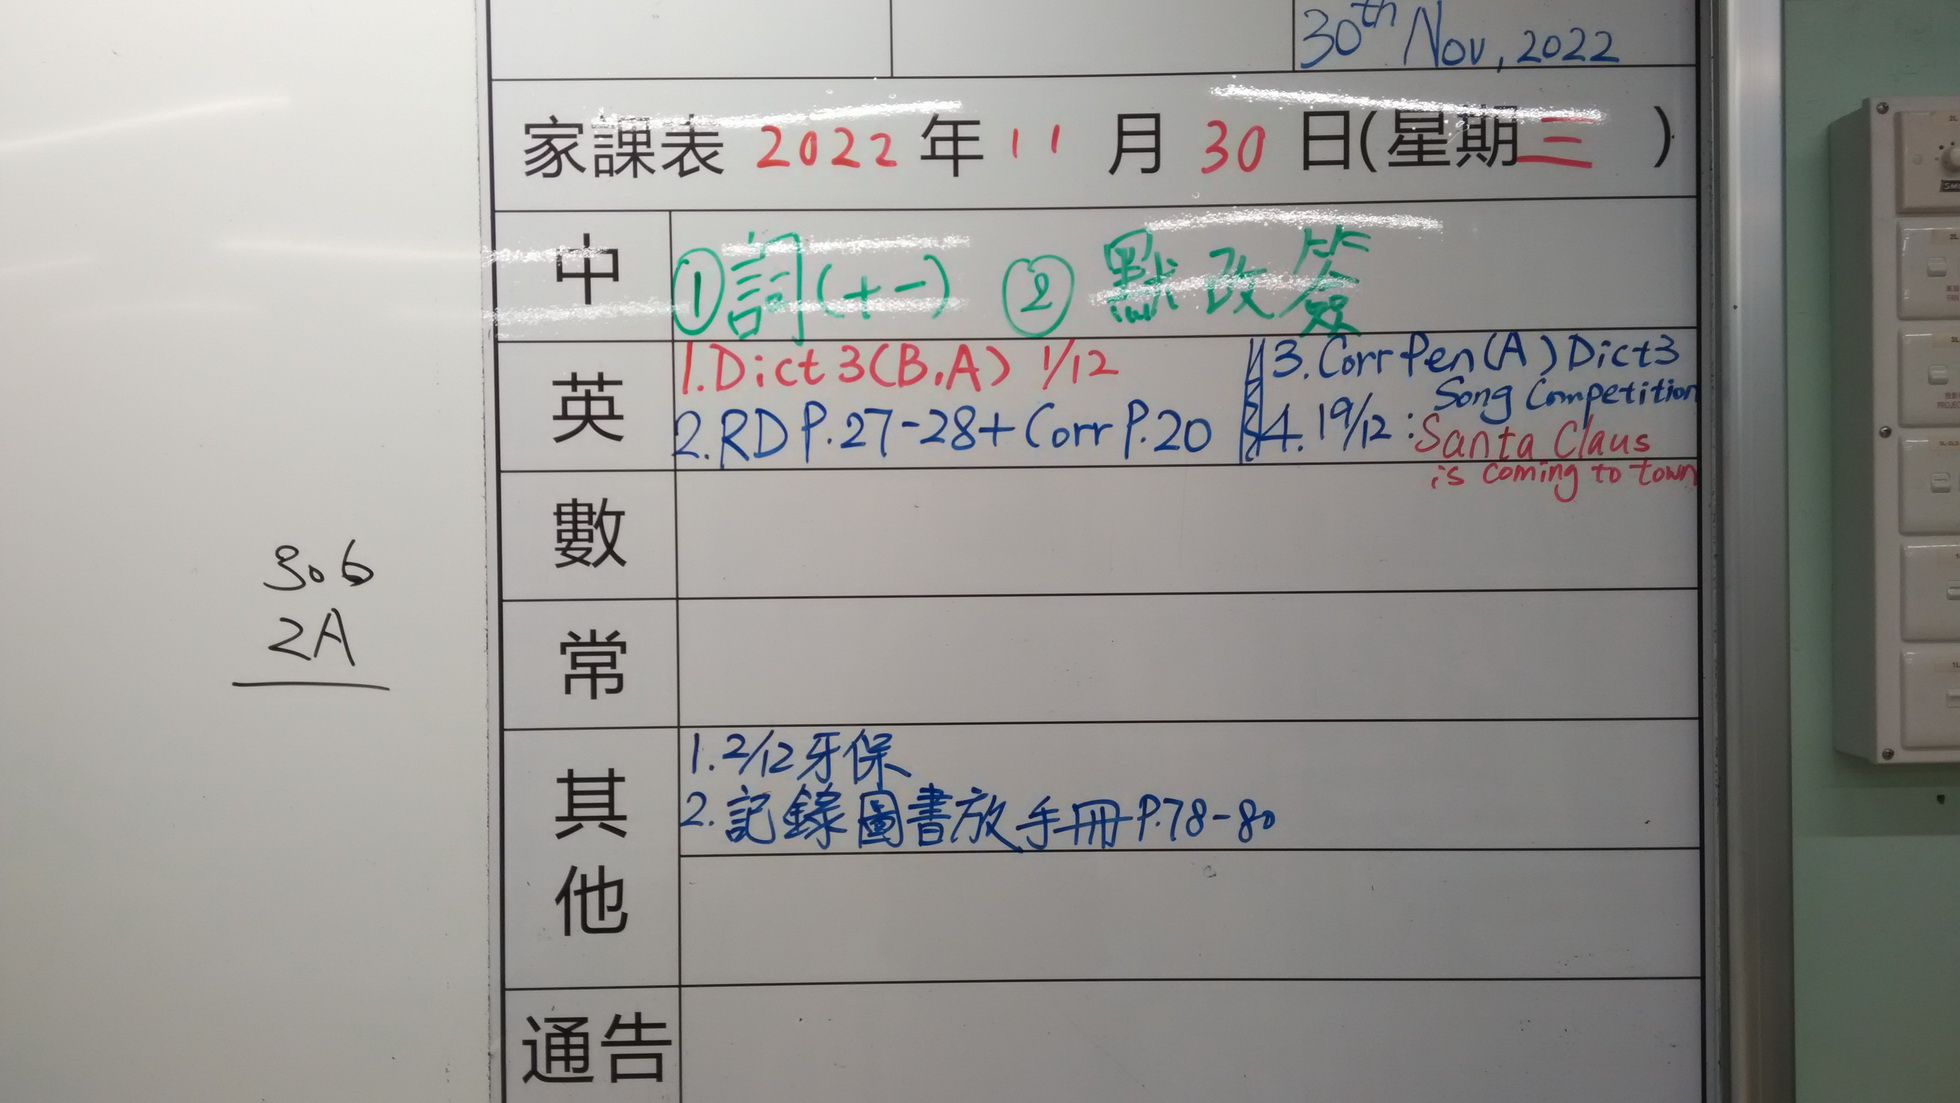 30th Nov, 2022
家課表 2022 年 11 月 30 日(星期三 )
中
①詞(十一) ② 默改簽
英
1. Dict 3(B,A) 1/12
2. RD P.27-28 + Corr P.20
3. Corr Pen(A) Dict 3
4. 19/12 : Song Competition
Santa Claus
is coming to town
數
306
2A
常
其他
1. 2/12 牙保
2. 記錄圖書放手冊 P.78-80
通告